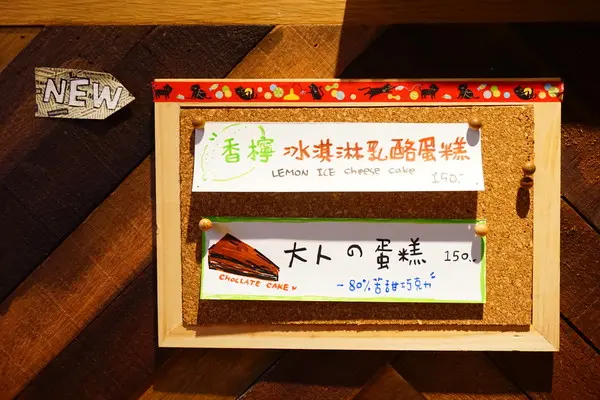 NEW
香檸 冰淇淋乳酪蛋糕
LEMON ICE cheese cake 150.-
大人の蛋糕 150.-
CHOCLATE CAKE
-80%苦甜巧克力